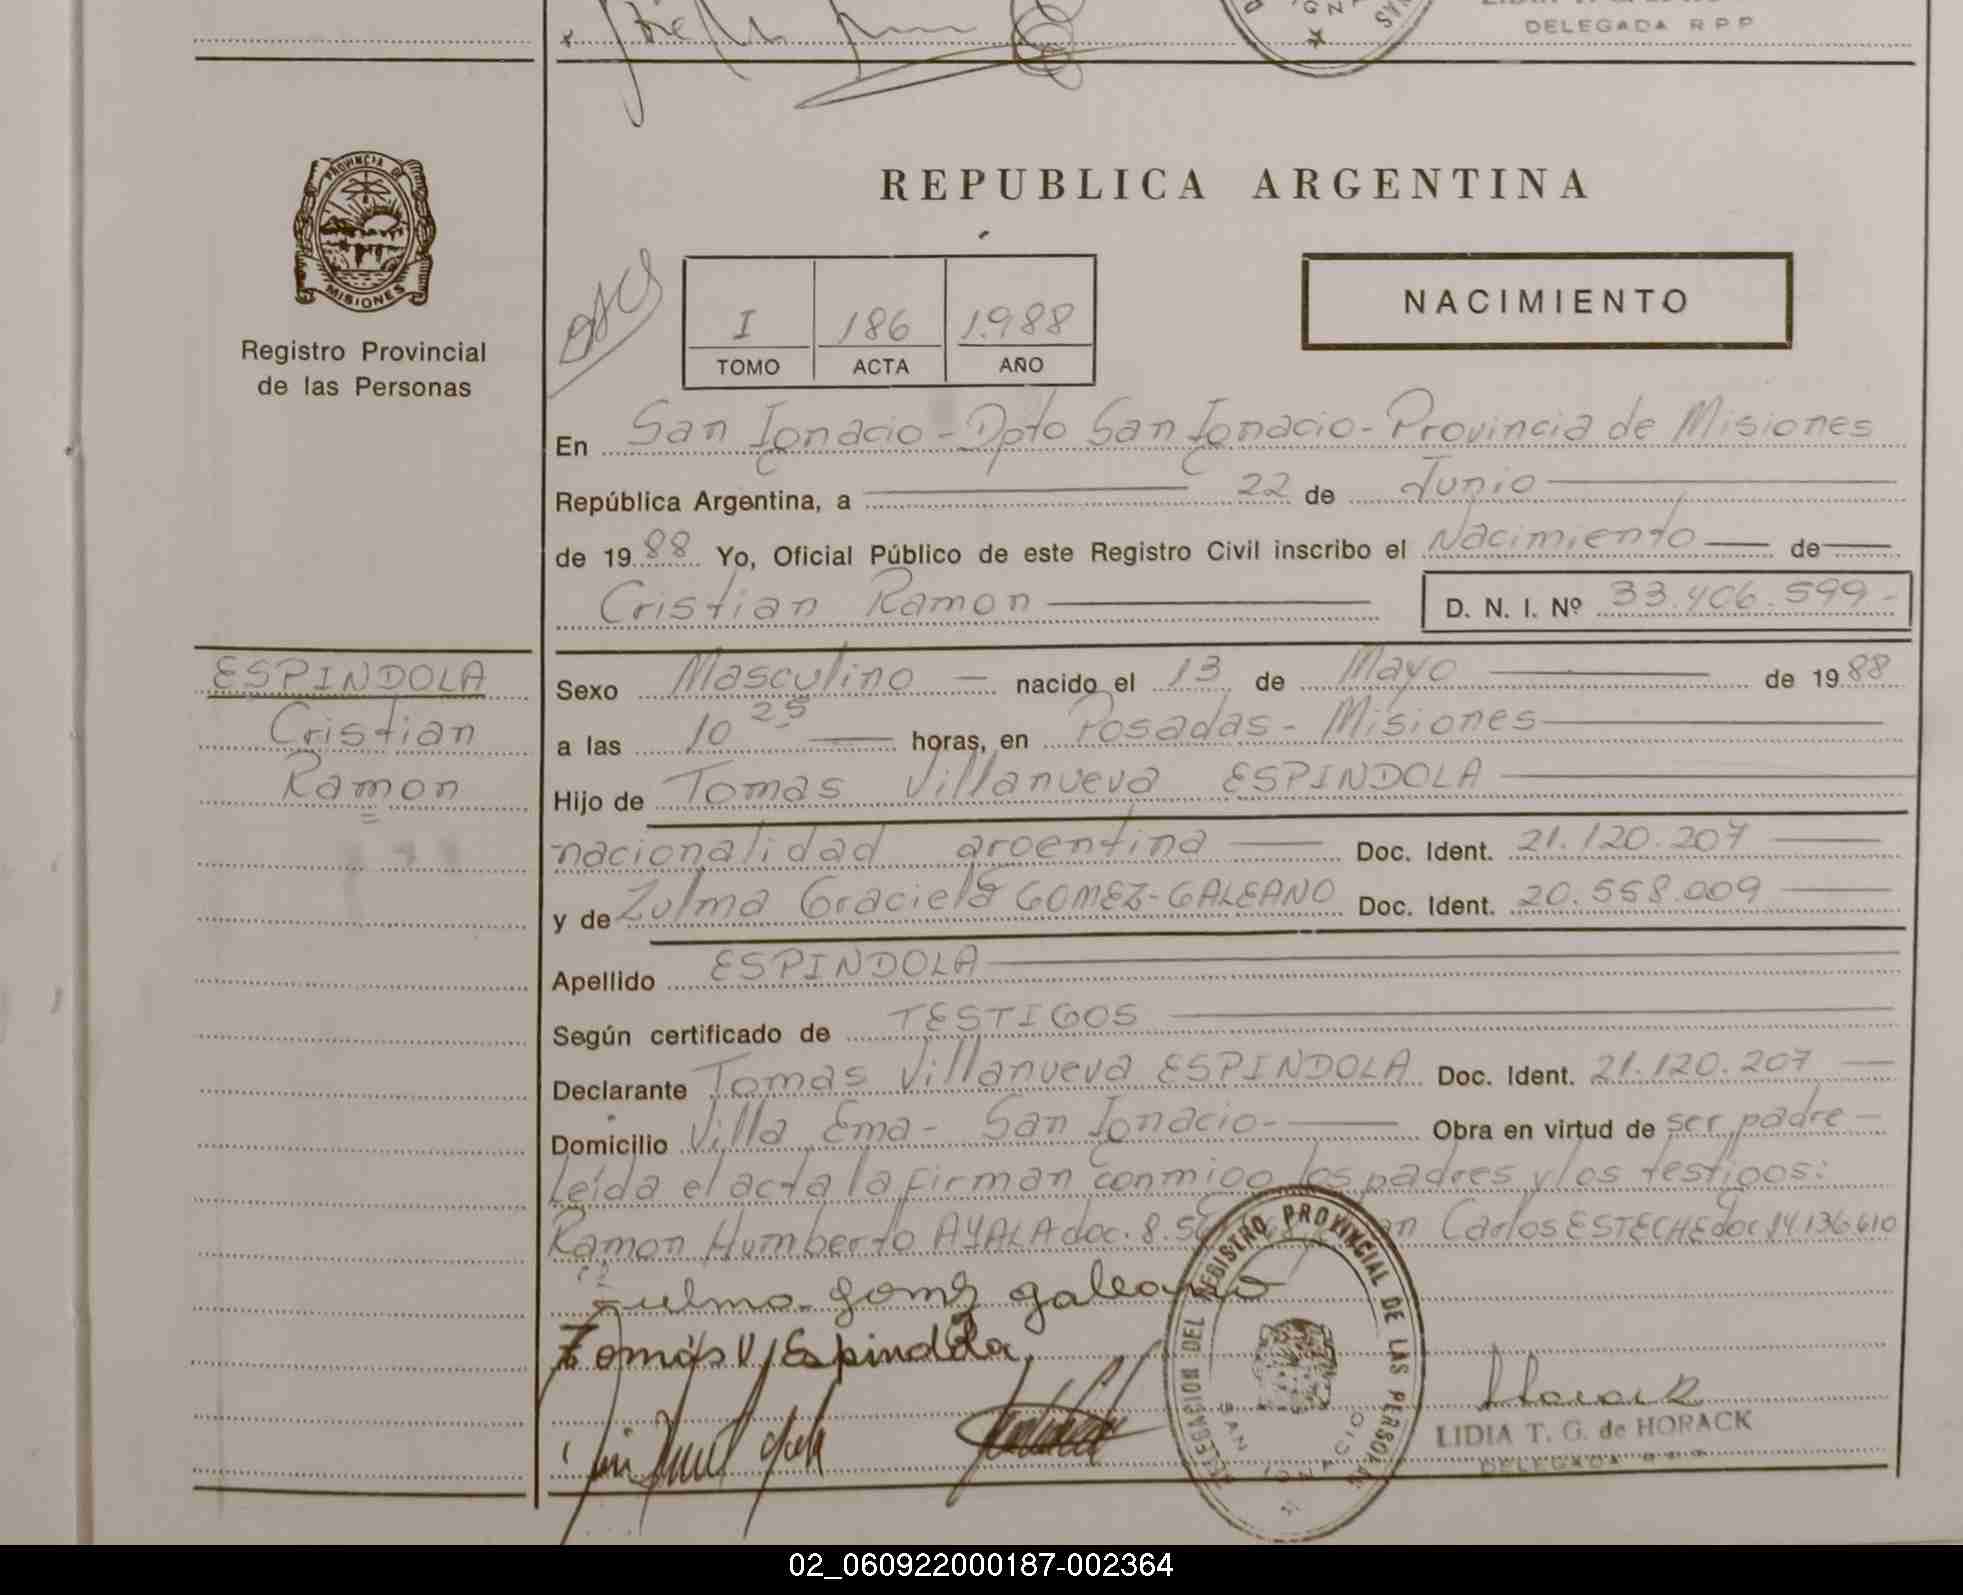 DELEGADA R P P
PROVINCIA DE
MISIONES
Registro Provincial
de las Personas
REPUBLICA ARGENTINA
I 186 1.988
TOMO ACTA AÑO
NACIMIENTO
En San Ignacio - Dpto San Ignacio - Provincia de Misiones
República Argentina, a 22 de Junio
de 1988 Yo, Oficial Público de este Registro Civil inscribo el Nacimiento de
Cristian Ramon D. N. I. Nº 33.406.599-
ESPINDOLA
Cristian
Ramon
Sexo Masculino nacido el 13 de Mayo de 1988
a las 10 25 horas, en Posadas - Misiones
Hijo de Tomas Villanueva ESPINDOLA
nacionalidad argentina Doc. Ident. 21.120.207
y de Zulma Graciela GOMEZ-GALEANO Doc. Ident. 20.558.009
Apellido ESPINDOLA
Según certificado de TESTIGOS
Declarante Tomas Villanueva ESPINDOLA Doc. Ident. 21.120.207
Domicilio Villa Ema - San Ignacio - Obra en virtud de ser padre -
Leída el acta la firman conmigo los padres y los testigos:
Ramon Humberto AYALA doc. 8.5 Carlos ESTECHE doc 14.136.610
Zulma Gomez galeano
Tomás V. Espindola
DELEGACION DEL REGISTRO PROVINCIAL DE LAS PERSONAS
SAN IGNACIO
Horack
LIDIA T. G. de HORACK
DELEGADA R P P
02_060922000187-002364